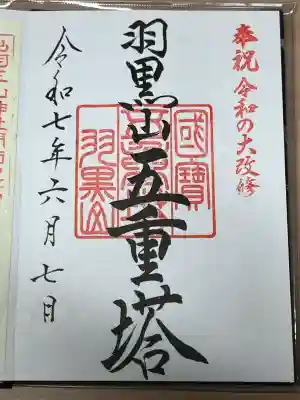 奉祝 令和の大改修
羽黒山五重塔
國寶
羽黒山
令和七年六月七日